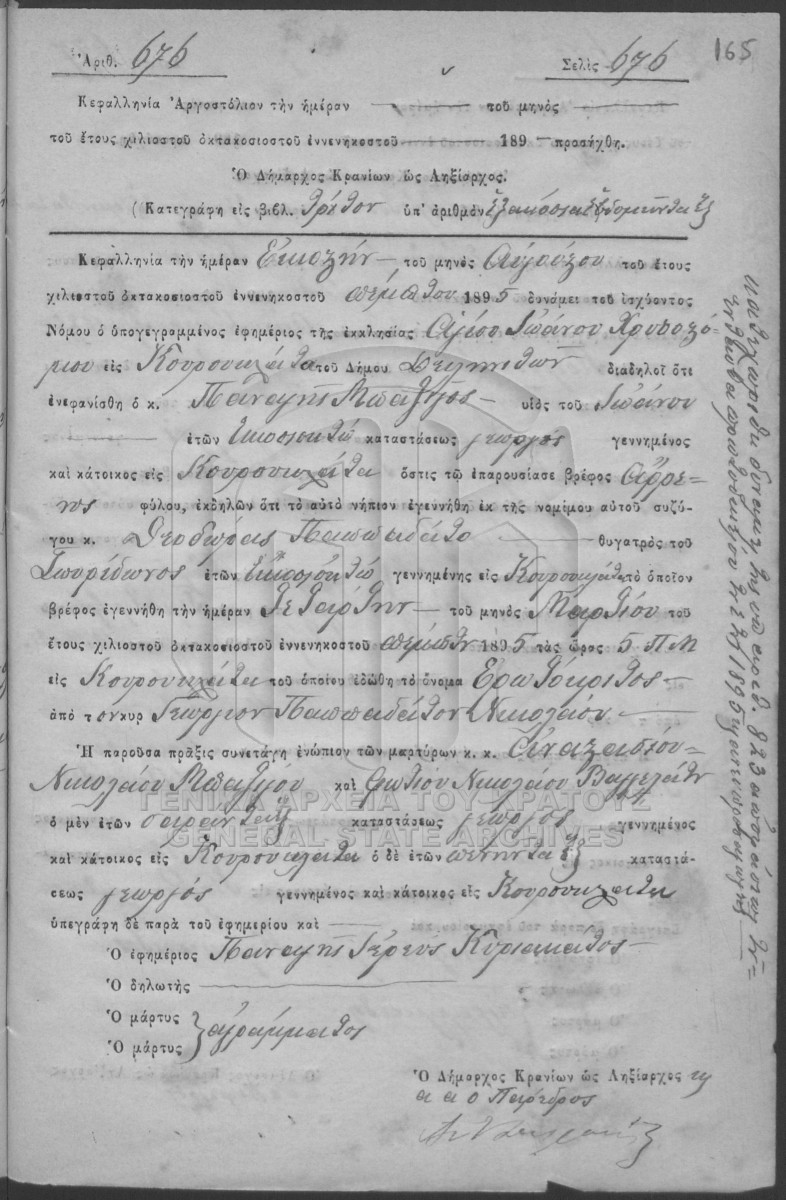 165
Ἀριθ. 676 Σελὶς 676
Κεφαλληνία Ἀργοστόλιον τὴν ἡμέραν τοῦ μηνὸς
τοῦ ἔτους χιλιοστοῦ ὀκτακοσιοστοῦ ἐννενηκοστοῦ 189 πρασήχθη.
Ὁ Δήμαρχος Κρανίων ὡς Ληξίαρχος.
(Κατεγράφη εἰς βιβλ. τρίτον ὑπ' ἀριθμὸν ἑξακόσια ἑβδομῆντα ἓξ
Κεφαλληνία τὴν ἡμέραν Εἰκοστήν τοῦ μηνὸς Αὐγούστου τοῦ ἔτους
χιλιοστοῦ ὀκτακοσιοστοῦ ἐννενηκοστοῦ πέμπτου 1895 δυνάμει τοῦ ἰσχύοντος
Νόμου ὁ ὑπογεγραμμένος ἐφημέριος τῆς ἐκκλησίας Ἁγίου Ἰωάνου Χρυσοστό-
μου εἰς Κουρουκλάτα τοῦ Δήμου διαδηλοῖ ὅτι
ἐνεφανίσθη ὁ κ. Παναγῆς Μπαζῆγος υἱὸς τοῦ Ἰωάνου
ἐτῶν Εἰκοσιοκτώ καταστάσεως γεωργός γεννημένος
καὶ κάτοικος εἰς Κουρουκλάτα ὅστις τῷ ἐπαρουσίασε βρέφος ἄρρε-
νος φύλου, ἐκδηλῶν ὅτι τὸ αὐτὸ νήπιον ἐγεννήθη ἐκ τῆς νομίμου αὐτοῦ συζύ-
γου κ. Θεοδώρας Παππαδάτο θυγατρὸς τοῦ
Σπυρίδωνος ἐτῶν Εἰκοσιοκτώ γεννημένης εἰς Κουρουκλάτα τὸ ὁποῖον
βρέφος ἐγεννήθη τὴν ἡμέραν Τετάρτην τοῦ μηνὸς Μαρτίου τοῦ
ἔτους χιλιοστοῦ ὀκτακοσιοστοῦ ἐννενηκοστοῦ πέμπτου 1895 τὰς ὥρας 5 Π Μ
εἰς Κουρουκλάτα τοῦ ὁποίου ἐδώθη τὸ ὄνομα Ἐρωτόκριτος
ἀπὸ τὸν κυρ Γεώργιον Παππαδάτον Νικολάου
Ἡ παροῦσα πρᾶξις συνετάγη ἐνώπιον τῶν μαρτύρων κ. κ. Ἀναστασίου
Νικολάου Μπαζήγου καὶ Φωτίου Νικολάου Βαγγελάτου
ΓΕΝΙΚΑ ΑΡΧΕΙΑ ΤΟΥ ΚΡΑΤΟΥΣ
ὁ μὲν ἐτῶν σαράντα ἓξ καταστάσεως γεωργός γεννημένος
GENERAL STATE ARCHIVES
καὶ κάτοικος εἰς Κουρουκλάτα ὁ δὲ ἐτῶν πενῆντα ἓξ καταστά-
σεως γεωργός γεννημένος καὶ κάτοικος εἰς Κουρουκλάτα
ὑπεγράφη δὲ παρὰ τοῦ ἐφημερίου καὶ
Ὁ ἐφημέριος Παναγῆς Ἱερεύς Κυριακάτος
Ὁ δηλωτὴς
Ὁ μάρτυς
Ὁ μάρτυς } ἀγράμματος
Ὁ Δήμαρχος Κρανίων ὡς Ληξίαρχος
α α ο Πάρεδρος